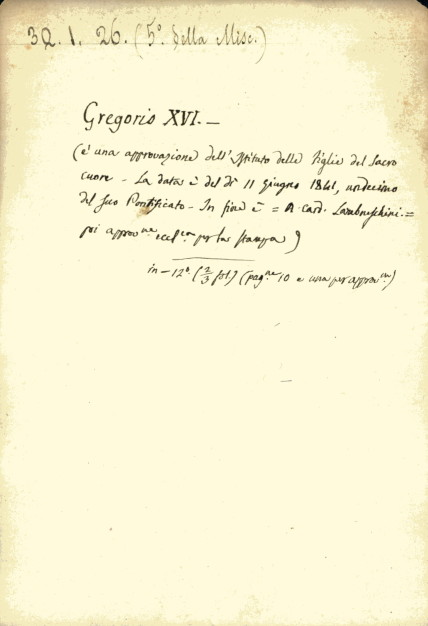 32. 1. 26. (5º della Misc.)
Gregorio XVI. —
(è una approvazione dell'Istituto delle figlie del Sacro
cuore – La data è del dì 11 Giugno 1841, undecimo
del suo Pontificato – In fine è = A. card. Lambruschini. =
poi approv.ne eccl.ca per la stampa)
in – 12º. (2/3 fol.) (pag.ne 10 e una per approv.ne)